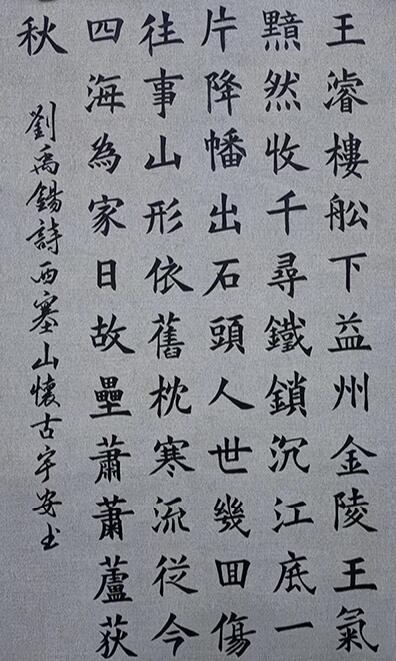 王濬樓舩下益州金陵王氣
黯然收千尋鐵鎖沉江底一
片降幡出石頭人世幾回傷
往事山形依舊枕寒流從今
四海為家日故壘蕭蕭蘆荻
秋
劉禹錫詩西塞山懷古宇安书